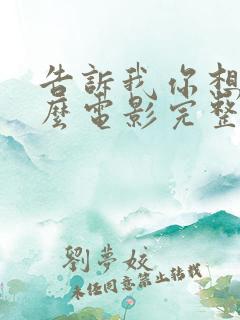 告訴我你想
麼電影完整
劉夢姣
未经同意禁止转载